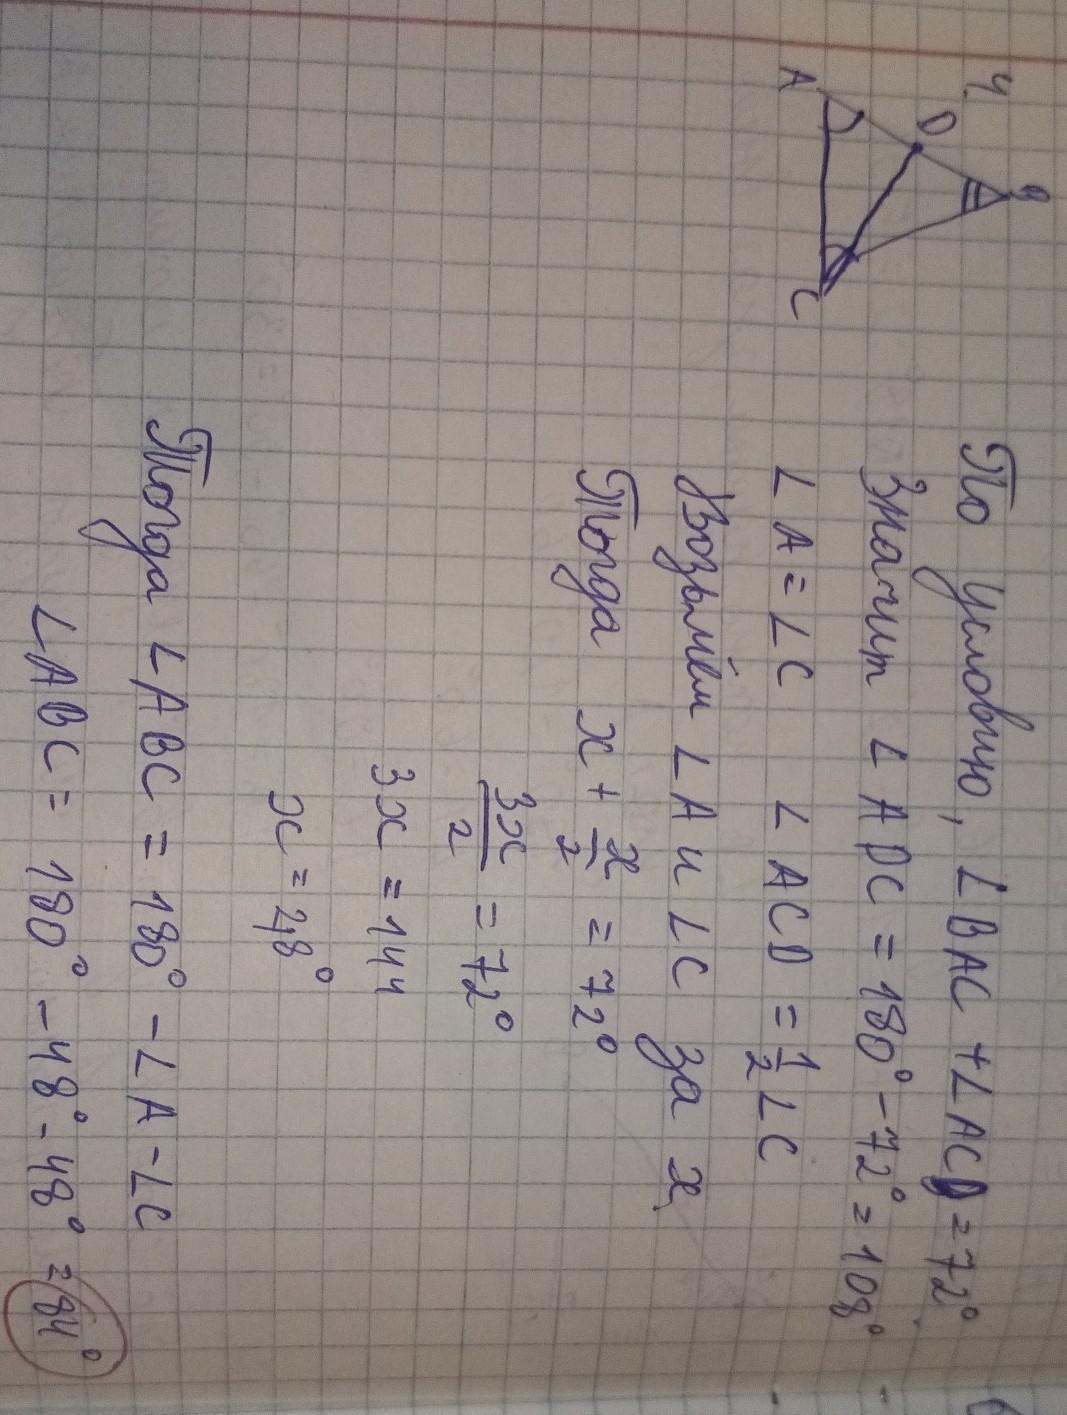 4.
B
D
A
C
По условию, ∠BAC + ∠ACD = 72°
Значит ∠ADC = 180° - 72° = 108°
∠A = ∠C ∠ACD = 1/2 ∠C
Возьмём ∠A и ∠C за x
Тогда x + x/2 = 72°
3x/2 = 72°
3x = 144
x = 48°
Тогда ∠ABC = 180° - ∠A - ∠C
∠ABC = 180° - 48° - 48° = 84°